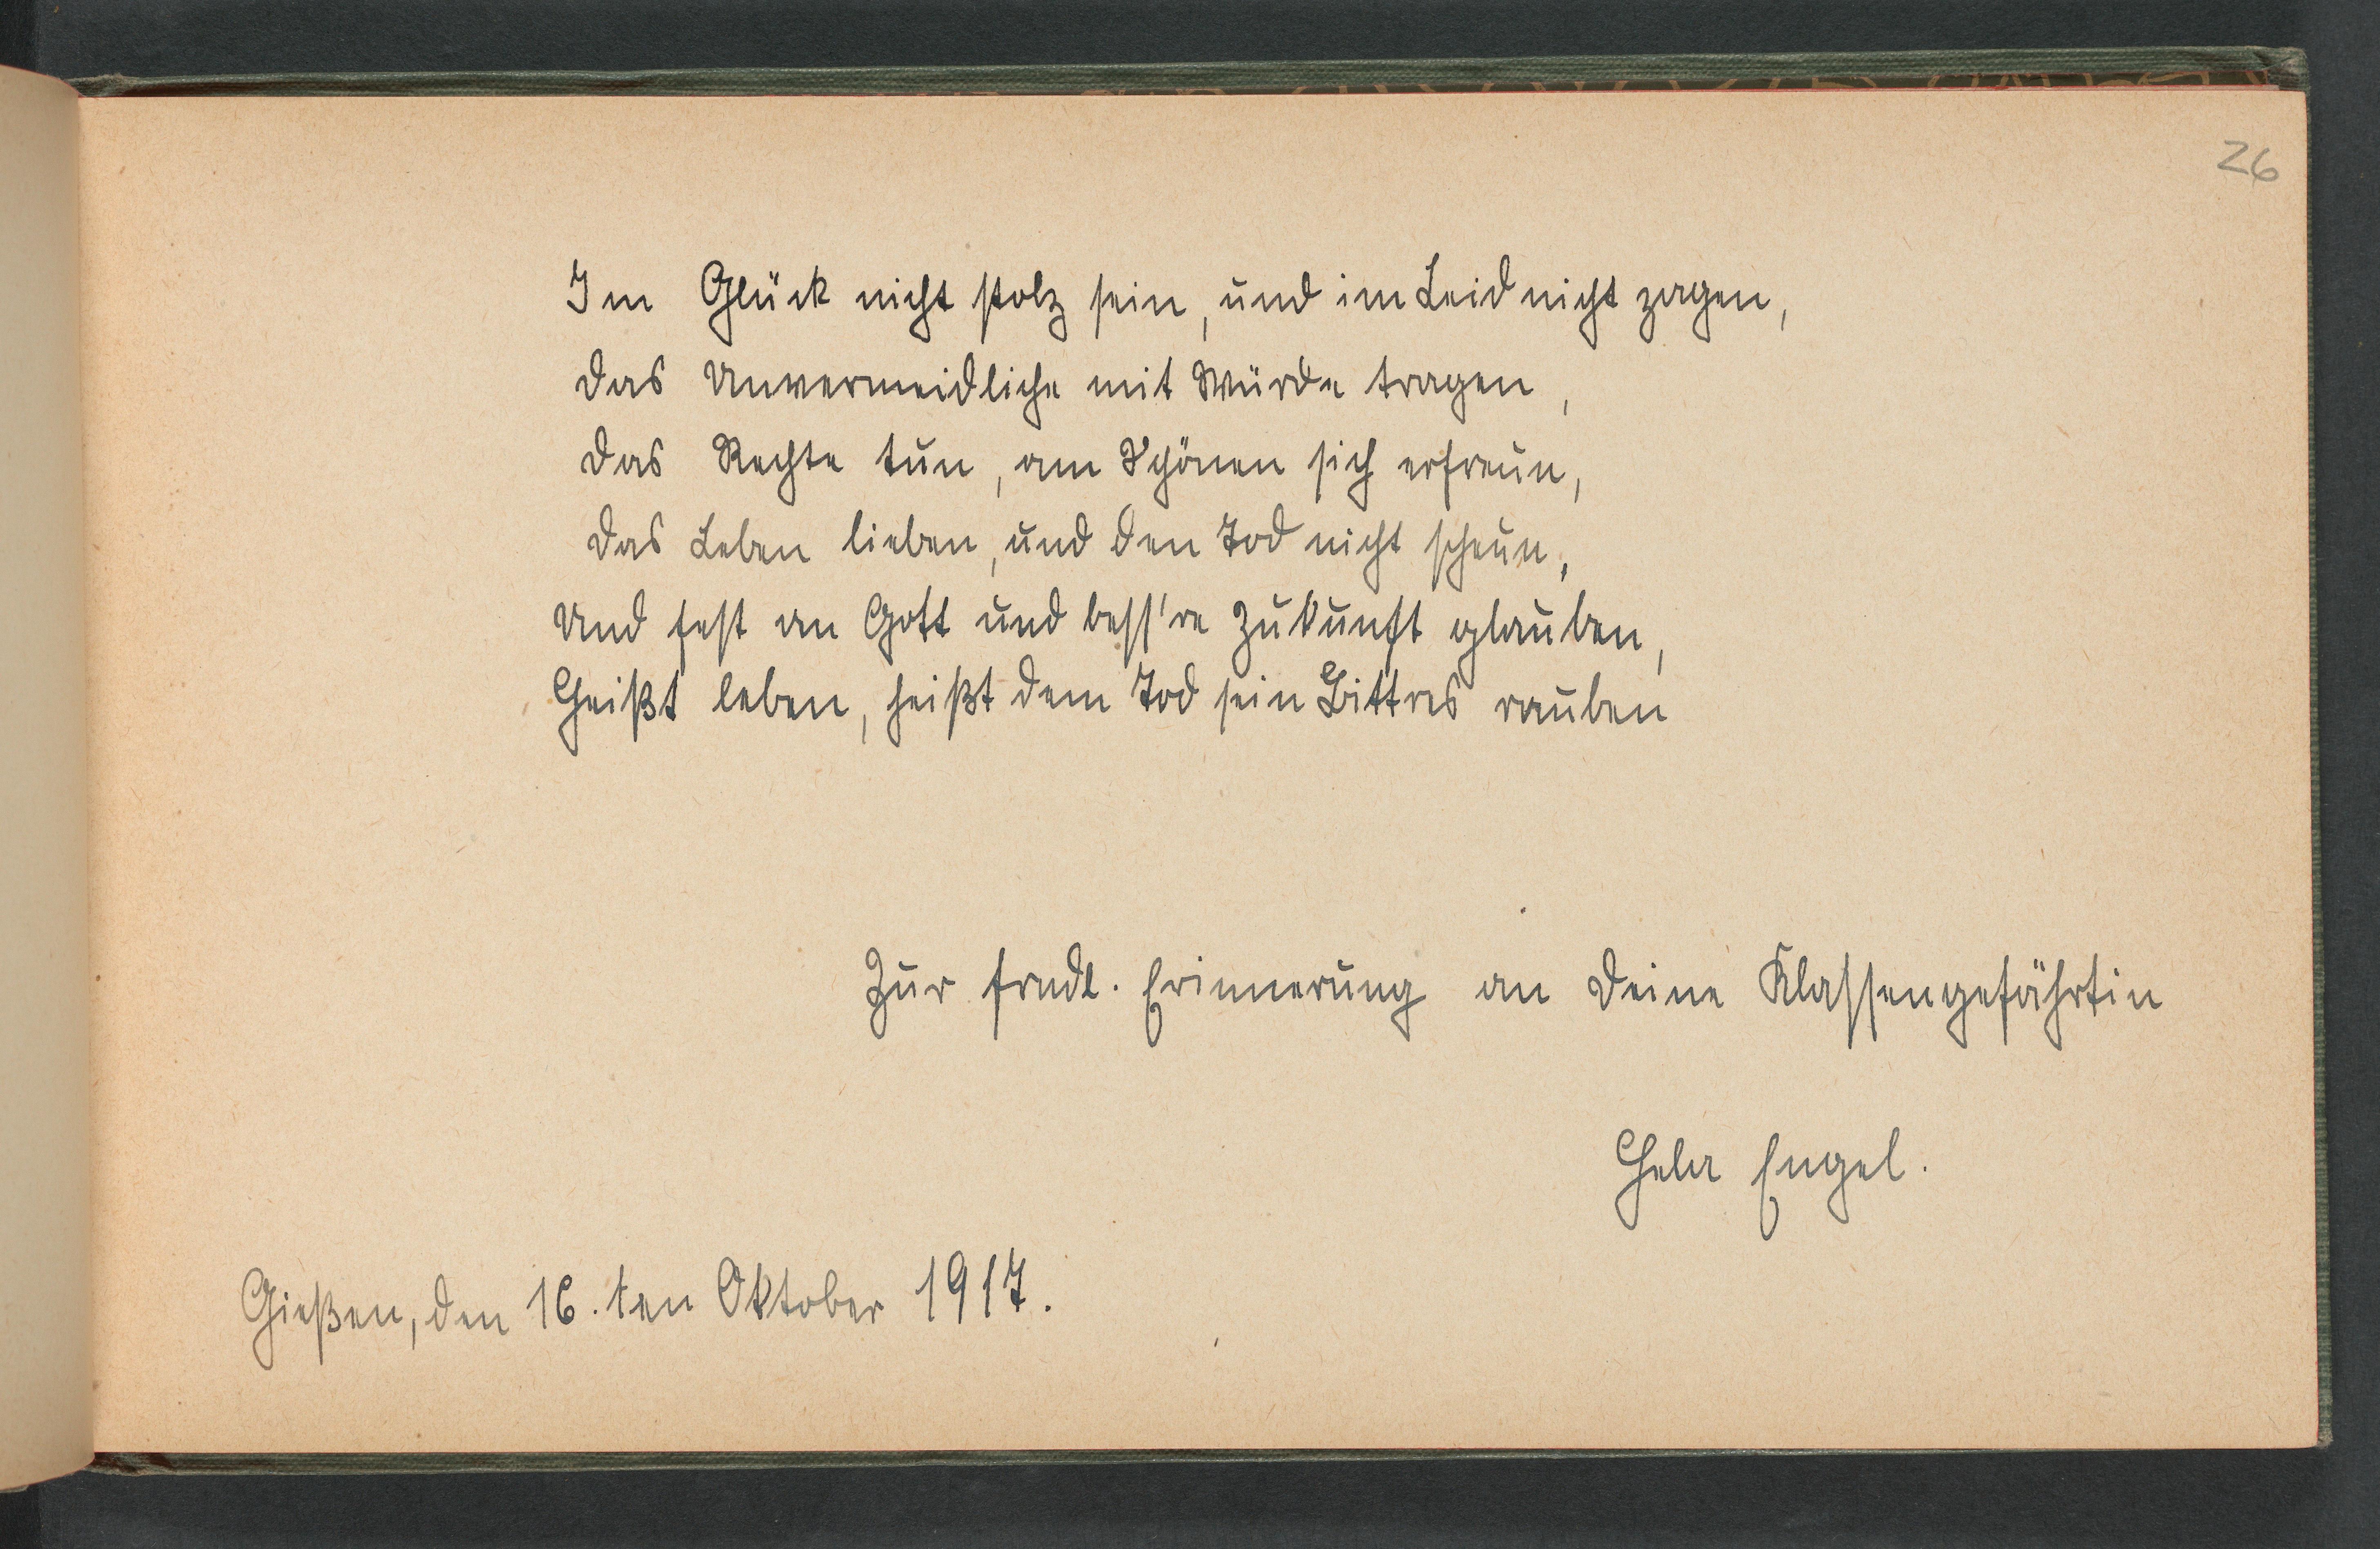 26
Im Glück nicht stolz sein, und im Leid nicht zagen,
das Unvermeidliche mit Würde tragen,
das Rechte tun, am Schönen sich erfreun,
das Leben lieben, und den Tod nicht scheun,
Und fest an Gott und bess're Zukunft glauben,
Heißt leben, heißt dem Tod sein Bittres rauben
Zur frndl. Erinnerung an Deine Klassengefährtin
Hela Engel.
Gießen, den 16. ten Oktober 1917.